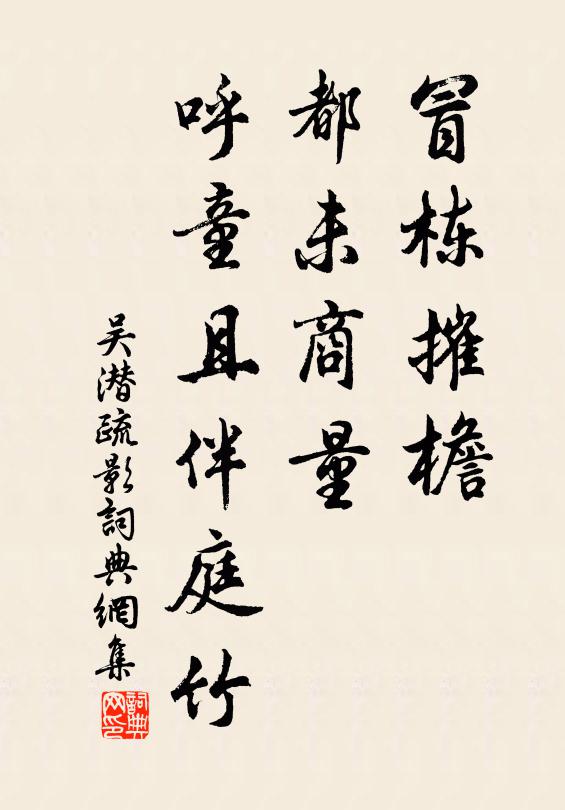 冒栋摧檐
都未商量
呼童且伴庭竹
吴潜疏影詞典網集
詞典網印